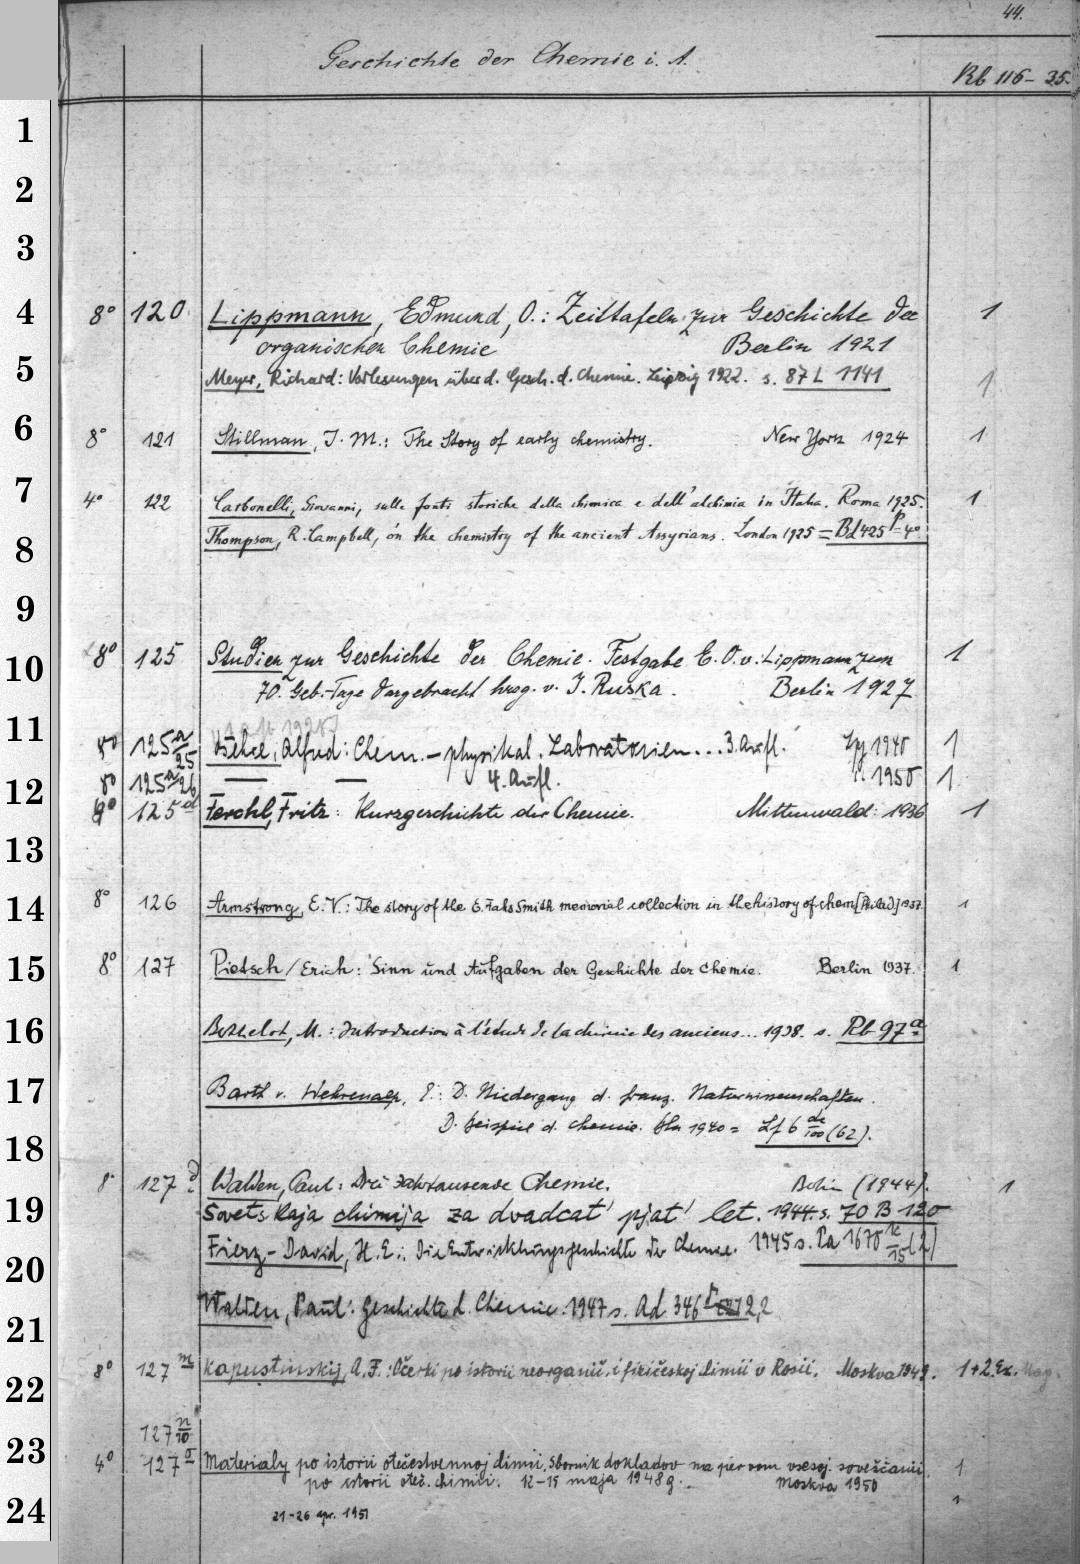 44.
Geschichte der Chemie i. A.
Rb 116-35.
1
2
3
4 8° 120 Lippmann, Edmund, O.: Zeittafeln zur Geschichte der 1
organischen Chemie Berlin 1921
5 Meyer, Richard: Vorlesungen über d. Gesch. d. Chemie. Leipzig 1922. s. 87 L 1141 1
6 8° 121 Stillman, J. M.: The Story of early chemistry. New York 1924 1
7 4° 122 Carbonelli, Giovanni, sulle fonti storiche della chimica e dell'alchimia in Italia. Roma 1925. 1
8 Thompson, R. Campbell, on the chemistry of the ancient Assyrians. London 1925 = Bd 425 P - 4°
9
10 8° 125 Studien zur Geschichte der Chemie. Festgabe E. O. v. Lippmann zum 1
70. Geb.-Tage dargebracht hrsg. v. J. Ruska. Berlin 1927
11 8° 125 a/25 Alfred: Chem.-physikal. Laboratorien... 3. Aufl. Lpz 1940 1
12 8° 125 a/26 — — 4. Aufl. " 1950 1
8° 125 d Ferchl, Fritz: Kurzgeschichte der Chemie. Mittenwald: 1936 1
13
14 8° 126 Armstrong, E. V.: The story of the E. Fahs Smith memorial collection in the history of chem [Philad.] 1937. 1
15 8° 127 Pietsch / Erich: Sinn und Aufgaben der Geschichte der Chemie. Berlin 1937. 1
16 Berthelot, M.: Introduction à l'étude de la chimie des anciens... 1938. s. Rb 97 a
17 Barth v. Wehrenalp, E.: D. Niedergang d. franz. Naturwissenschaften.
D. Beispiel d. Chemie. Bln 1940 = Lf 6 de/100 (62).
18
8° 127 d Walden, Paul: Drei Jahrtausende Chemie. Berlin (1944). 1
19 Sovetskaja chimija za dvadcat' pjat' let. 1944. s. 70 B 120
Fierz-David, H. E.: Die Entwicklungsgeschichte der Chemie. 1945 s. Pa 1670 k/15 (2)
20
Walden, Paul: Geschichte d. Chemie. 1947 s. Ad 346 2,2
21
8° 127 m Kapustinskij, A. F.: Očerki po istorii neorganič. i fizičeskoj chimii v Rosii. Moskva 1949. 1+2. Ex. Mag.
22
127 n/10
23 4° 127 o Materialy po istorii otečestvennoj chimii. Sbornik dokladov na pervom vsesoj. soveščanii 1
po istorii oteč. chimii. 12-15 maja 1948 g. Moskva 1950
24 21-26 apr. 1951 1